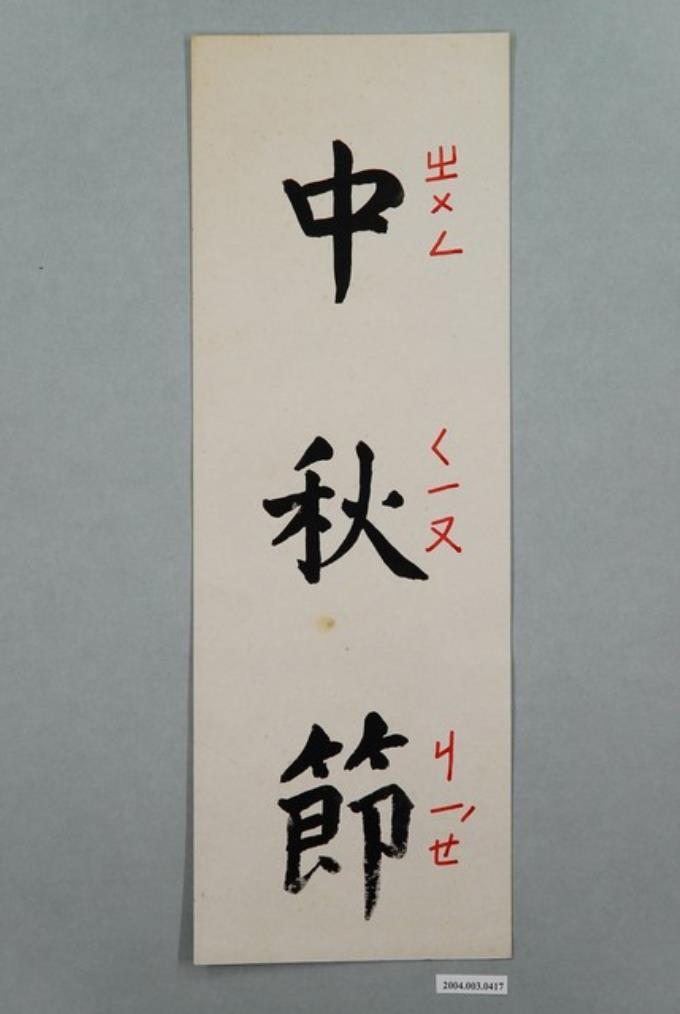 中秋節
ㄓㄨㄥ
ㄑㄧㄡ
ㄐㄧㄝˊ
2004.003.0417